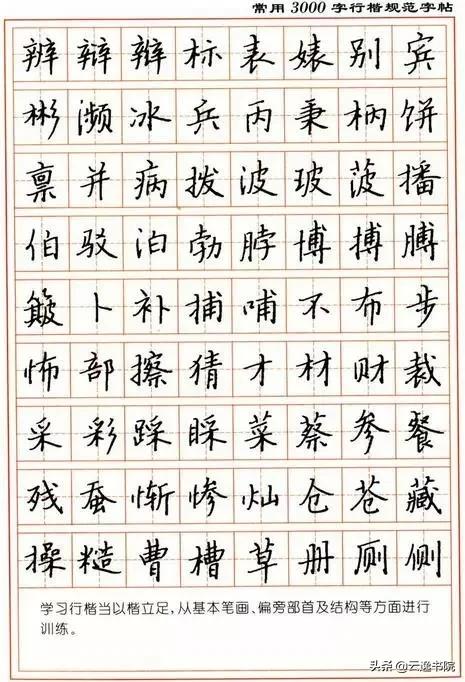 常用3000字行楷规范字帖
辨 辩 辫 标 表 婊 别 宾
彬 濒 冰 兵 丙 秉 柄 饼
禀 并 病 拨 波 玻 菠 播
伯 驳 泊 勃 脖 博 搏 膊
簸 卜 补 捕 哺 不 布 步
怖 部 擦 猜 才 材 财 裁
采 彩 踩 睬 菜 蔡 参 餐
残 蚕 惭 惨 灿 仓 苍 藏
操 糙 曹 槽 草 册 厕 侧
学习行楷当以楷立足,从基本笔画、偏旁部首及结构等方面进行
训练。
头条@云逸书院